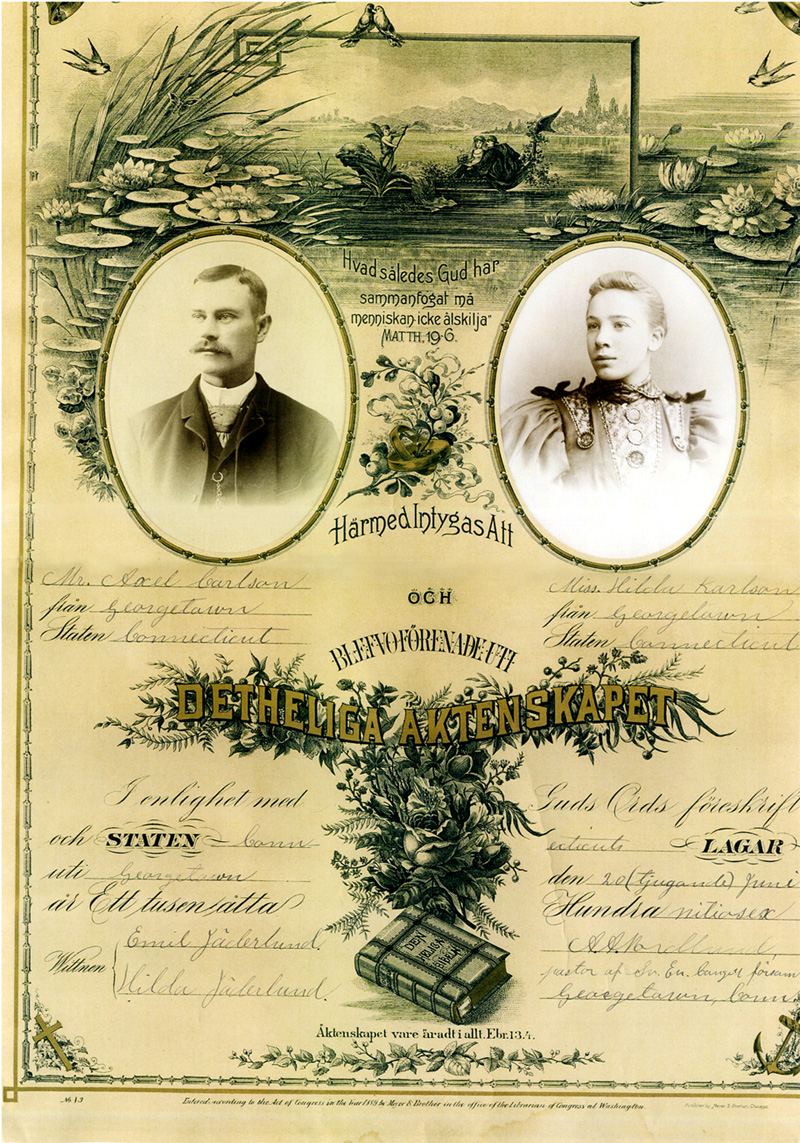 Hvad således Gud har
sammanfogat må
menniskan icke åtskilja"
MATTH. 19-6.
Härmed Intygas Att
Mr. Axel Carlson
från Georgetown
Staten Connecticut
OCH
Miss. Hilda Karlson
från Georgetown
Staten Connecticut
BLEFVO FÖRENADE UTI
DET HELIGA ÄKTENSKAPET
I enlighet med Guds Ords föreskrift
och STATEN Conn ecticuts LAGAR
uti Georgetown den 20 (tjugande) Juni
år Ett tusen åtta Hundra nitiosex
Wittnen
Emil Jäderlund.
Hilda Jäderlund.
pastor af Sv. Ev. församl
Georgetown, Conn.
DEN HELIGA BIBELN
Äktenskapet vare äradt i allt. Ebr. 13.4.
No 13
Entered according to the Act of Congress in the Year 1889 by Meyer & Brother in the office of the Librarian of Congress at Washington.
Published by Meyer & Brother, Chicago.